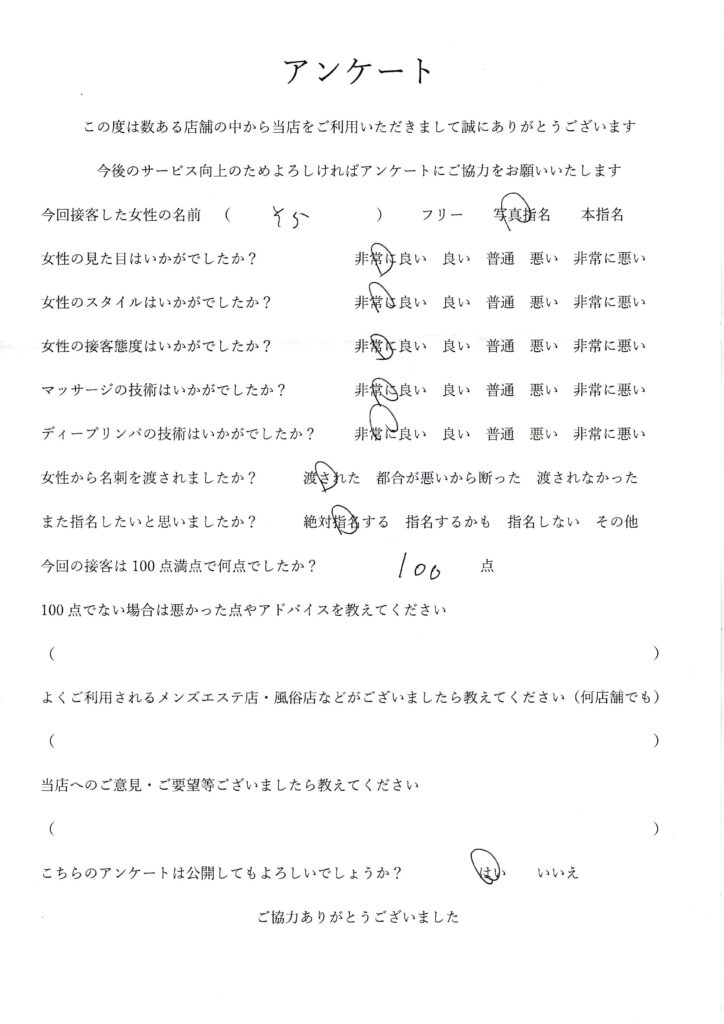 アンケート
この度は数ある店舗の中から当店をご利用いただきまして誠にありがとうございます
今後のサービス向上のためよろしければアンケートにご協力をお願いいたします
今回接客した女性の名前 ( そら ) フリー 写真指名 本指名
女性の見た目はいかがでしたか? 非常に良い 良い 普通 悪い 非常に悪い
女性のスタイルはいかがでしたか? 非常に良い 良い 普通 悪い 非常に悪い
女性の接客態度はいかがでしたか? 非常に良い 良い 普通 悪い 非常に悪い
マッサージの技術はいかがでしたか? 非常に良い 良い 普通 悪い 非常に悪い
ディープリンパの技術はいかがでしたか? 非常に良い 良い 普通 悪い 非常に悪い
女性から名刺を渡されましたか? 渡された 都合が悪いから断った 渡されなかった
また指名したいと思いましたか? 絶対指名する 指名するかも 指名しない その他
今回の接客は100点満点で何点でしたか? 100 点
100点でない場合は悪かった点やアドバイスを教えてください
( )
よくご利用されるメンズエステ店・風俗店などがございましたら教えてください(何店舗でも)
( )
当店へのご意見・ご要望等ございましたら教えてください
( )
こちらのアンケートは公開してもよろしいでしょうか? はい いいえ
ご協力ありがとうございました